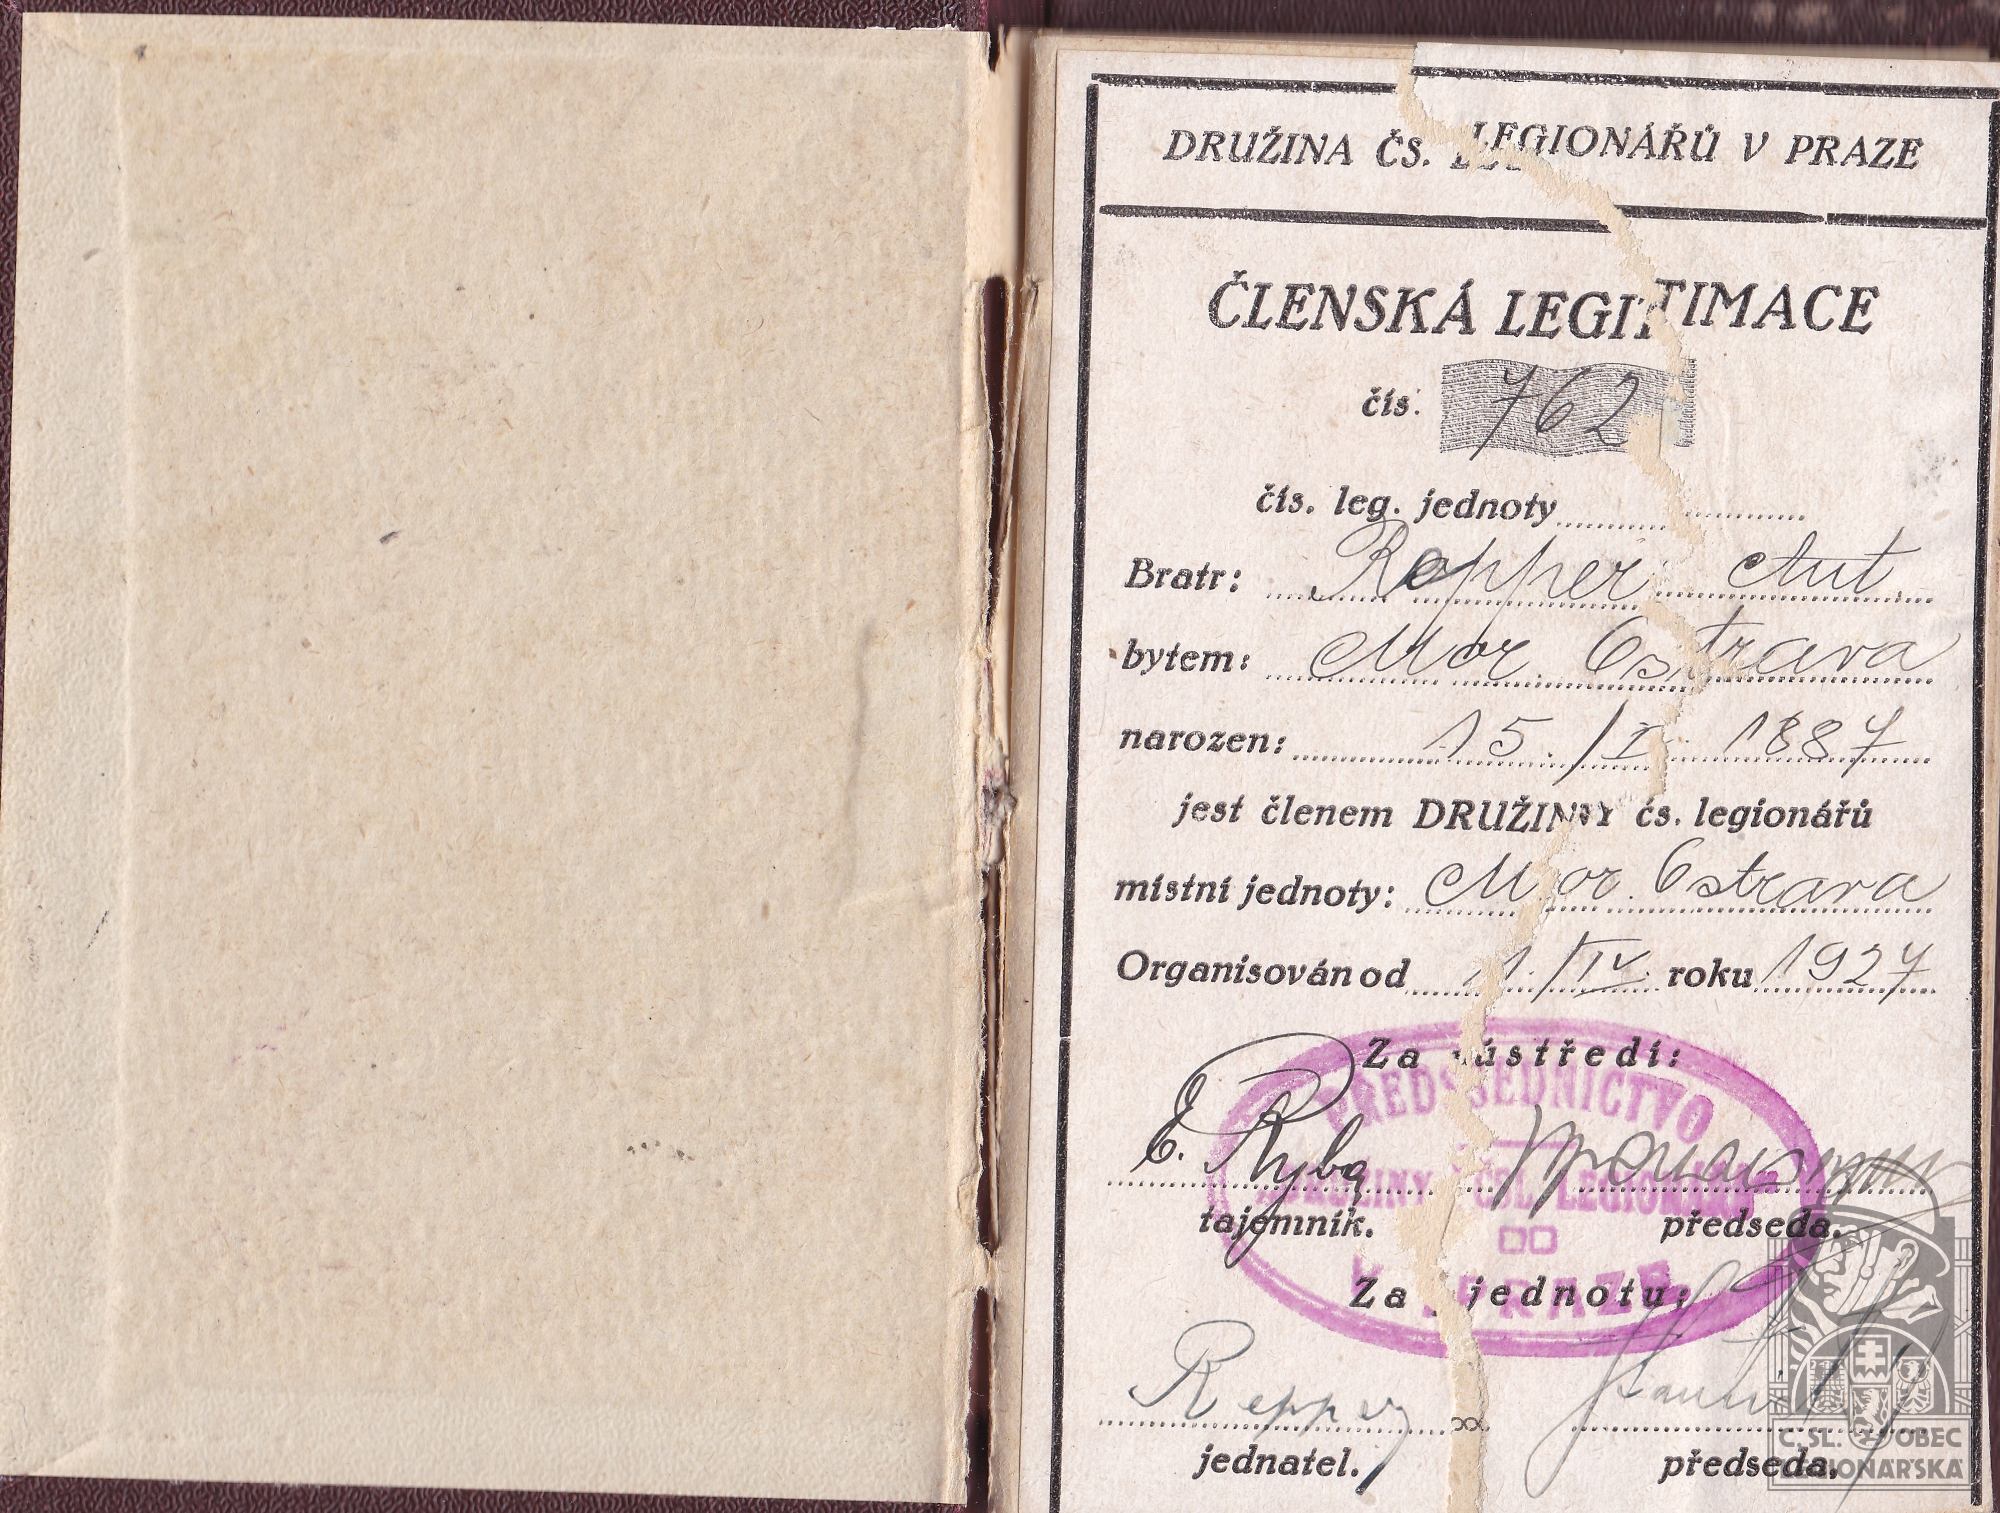 DRUŽINA ČS. LEGIONÁŘŮ V PRAZE
ČLENSKÁ LEGITIMACE
čís. 762
čís. leg. jednoty
Bratr: Repper Ant.
bytem: Mor. Ostrava
narozen: 15./I. 1887
jest členem DRUŽINY čs. legionářů
místní jednoty: Mor. Ostrava
Organisován od 1./IV. roku 1927
Za ústředí:
PŘEDSEDNICTVO
E. Ryba
DRUŽINY ČSL. LEGIONÁŘŮ
tajemník. předseda.
V PRAZE.
Za jednotu:
Repper
jednatel. předseda.
Č. SL. OBEC
LEGIONÁŘSKÁ